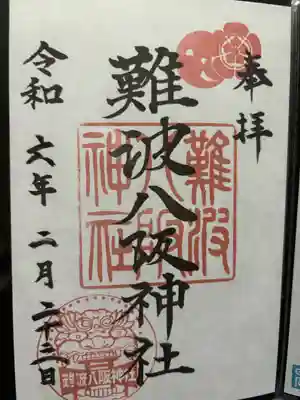 奉拝
難波八阪神社
難波
八阪
神社
令和六年二月二十三日
難波八阪神社